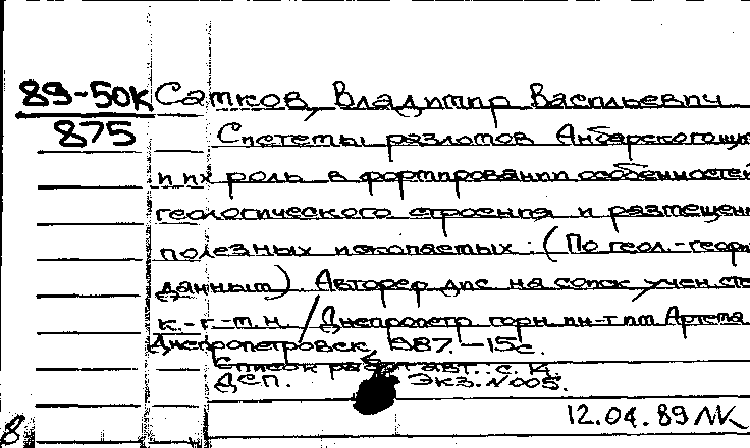 89-50к Сатков, Владимир Васильевич
875 Системы разломов Анбарского щи
и их роль в формировании особенностей
геологического строения и размещени
полезных ископаемых: (По геол.-геофи
данным). Автореф дис на соиск учен сте
к.-г.-м.н. / Днепропетр горн ин-т им Артема
Днепропетровск, 1987. - 15с.
Список работ авт.: с. 14.
ДСП. Экз. N 005.
12.04.89 ЛК
8